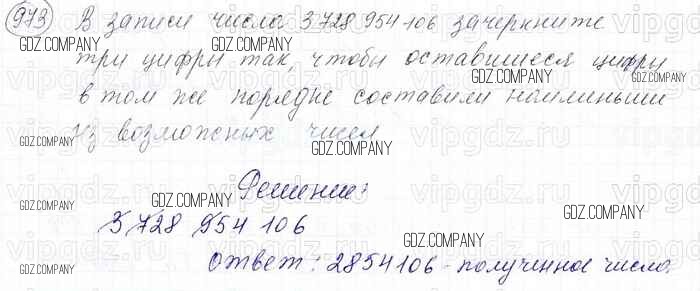 973 В записи числа 3 728 954 106 зачеркните
GDZ.COMPANY GDZ.COMPANY GDZ.COMPANY
три цифры так, чтобы оставшиеся цифры
GDZ.COMPANY GDZ.COMPANY
в том же порядке составили наименьшее
из возможных чисел
GDZ.COMPANY GDZ.COMPANY
Решение:
GDZ.COMPANY GDZ.COMPANY
3 728 954 106
GDZ.COMPANY GDZ.COMPANY
Ответ: 2854106 - полученное число.
GDZ.COMPANY